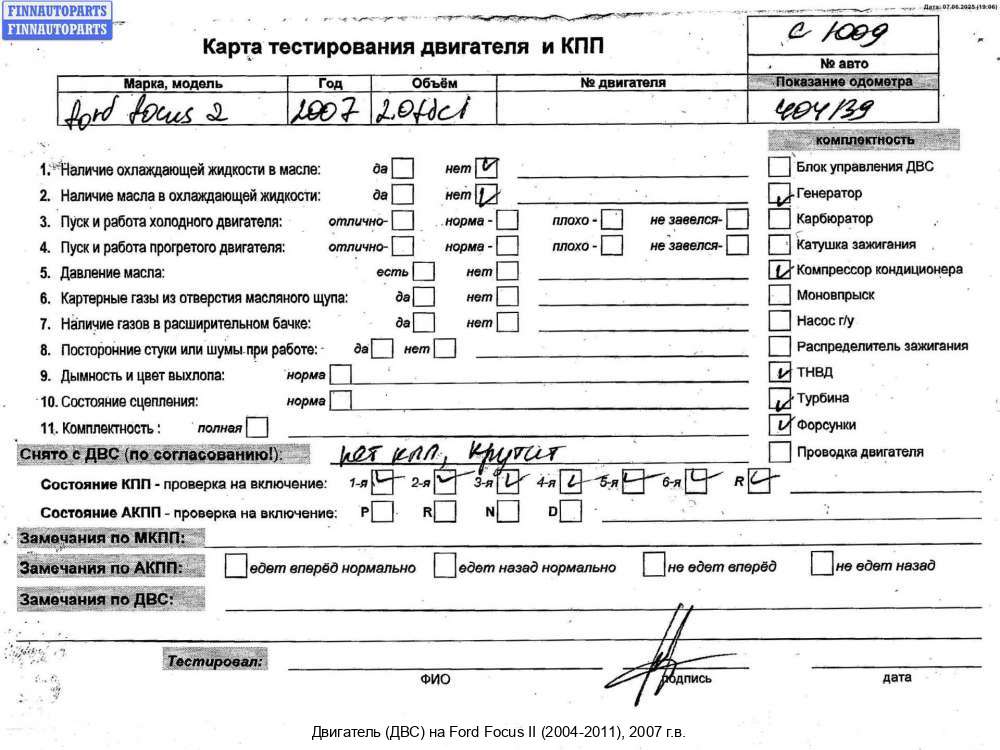 FINNAUTOPARTS
FINNAUTOPARTS
Дата: 07.06.2025 (19:06)
Карта тестирования двигателя и КПП
C 1009
№ авто
Марка, модель Год Объём № двигателя Показание одометра
ford focus 2 2007 2.0tdci 404139
комплектность
1. Наличие охлаждающей жидкости в масле: да нет
Блок управления ДВС
2. Наличие масла в охлаждающей жидкости: да нет
Генератор
3. Пуск и работа холодного двигателя: отлично- норма - плохо - не завелся-
Карбюратор
4. Пуск и работа прогретого двигателя: отлично- норма - плохо - не завелся-
Катушка зажигания
5. Давление масла: есть нет
Компрессор кондиционера
6. Картерные газы из отверстия масляного щупа: да нет
Моновпрыск
7. Наличие газов в расширительном бачке: да нет
Насос г/у
8. Посторонние стуки или шумы при работе: да нет
Распределитель зажигания
9. Дымность и цвет выхлопа: норма
ТНВД
10. Состояние сцепления: норма
Турбина
11. Комплектность : полная
Форсунки
Снято с ДВС (по согласованию!): нет кпп, крутит
Проводка двигателя
Состояние КПП - проверка на включение: 1-я 2-я 3-я 4-я 5-я 6-я R
Состояние АКПП - проверка на включение: P R N D
Замечания по МКПП:
Замечания по АКПП: едет вперёд нормально едет назад нормально не едет вперёд не едет назад
Замечания по ДВС:
Тестировал:
ФИО подпись дата
Двигатель (ДВС) на Ford Focus II (2004-2011), 2007 г.в.